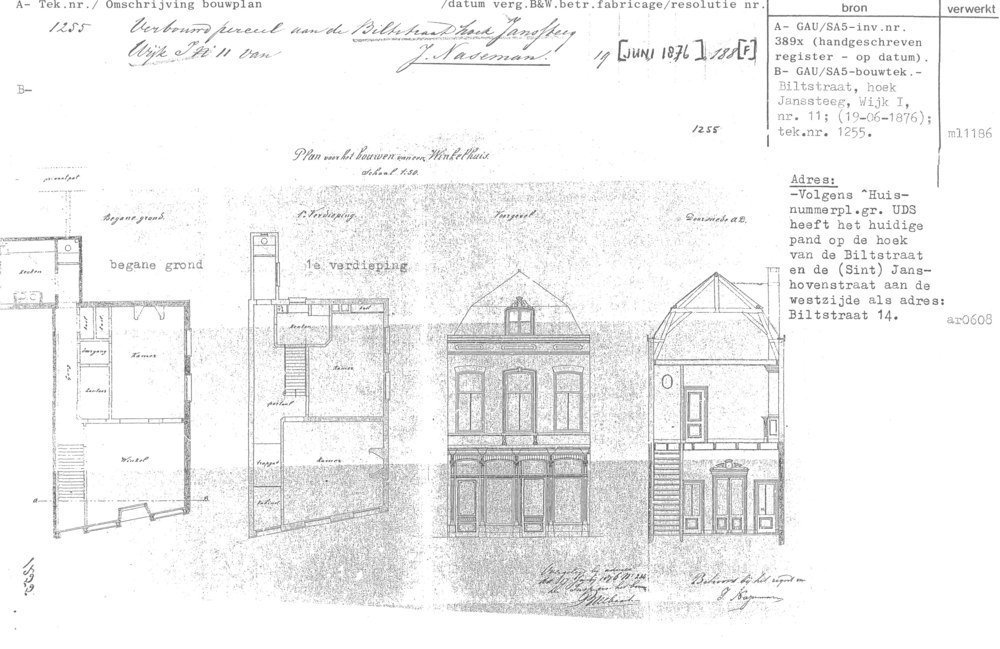 A- Tek.nr./ Omschrijving bouwplan /datum verg.B&W.betr.fabricage/resolutie nr.
bron
verwerkt
1255 Verbouwd perceel aan de Biltstraat hoek Janssteeg
Wijk I N° 11 van J. Nageman. 19 [JUNI 1876] 188 [F]
B-
A- GAU/SA5-inv.nr.
389x (handgeschreven
register - op datum).
B- GAU/SA5-bouwtek.-
Biltstraat, hoek
Janssteeg, Wijk I,
nr. 11; (19-06-1876);
tek.nr. 1255.
ml1186
1255
Plan voor het bouwen van een Winkelhuis.
Schaal 1:50.
Adres:
-Volgens ^Huis-
nummerpl.gr. UDS
heeft het huidige
pand op de hoek
van de Biltstraat
en de (Sint) Jans-
hovenstraat aan de
westzijde als adres:
Biltstraat 14.
ar0608
Begane grond.
1e Verdieping.
Voorgevel
Doorsnede A.B.
begane grond
1e verdieping
Keuken
Kast
Kast
Gang
Kamer
Winkel
A
B
Keuken
Kamer
portaal
Kamer
trappen